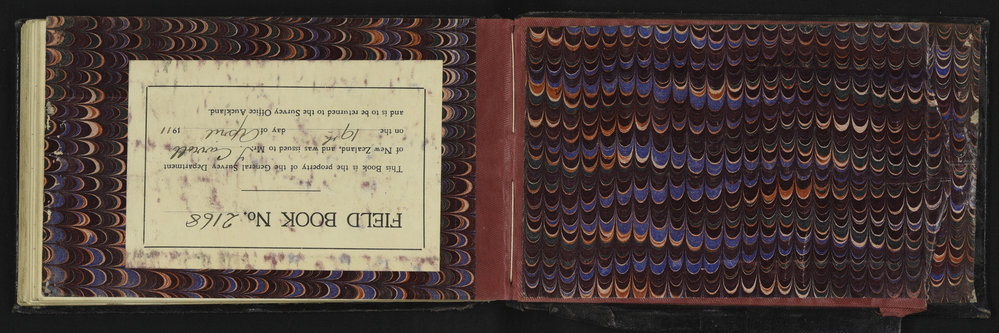 FIELD BOOK No. 2168
This Book is the property of the General Survey Department
of New Zealand, and was issued to Mr. J Carroll
on the 19th day of April 1911
and is to be returned to the Survey Office Auckland.